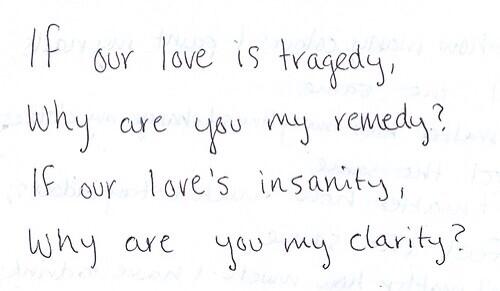 If our love is tragedy,
Why are you my remedy?
If our love's insanity,
Why are you my clarity?